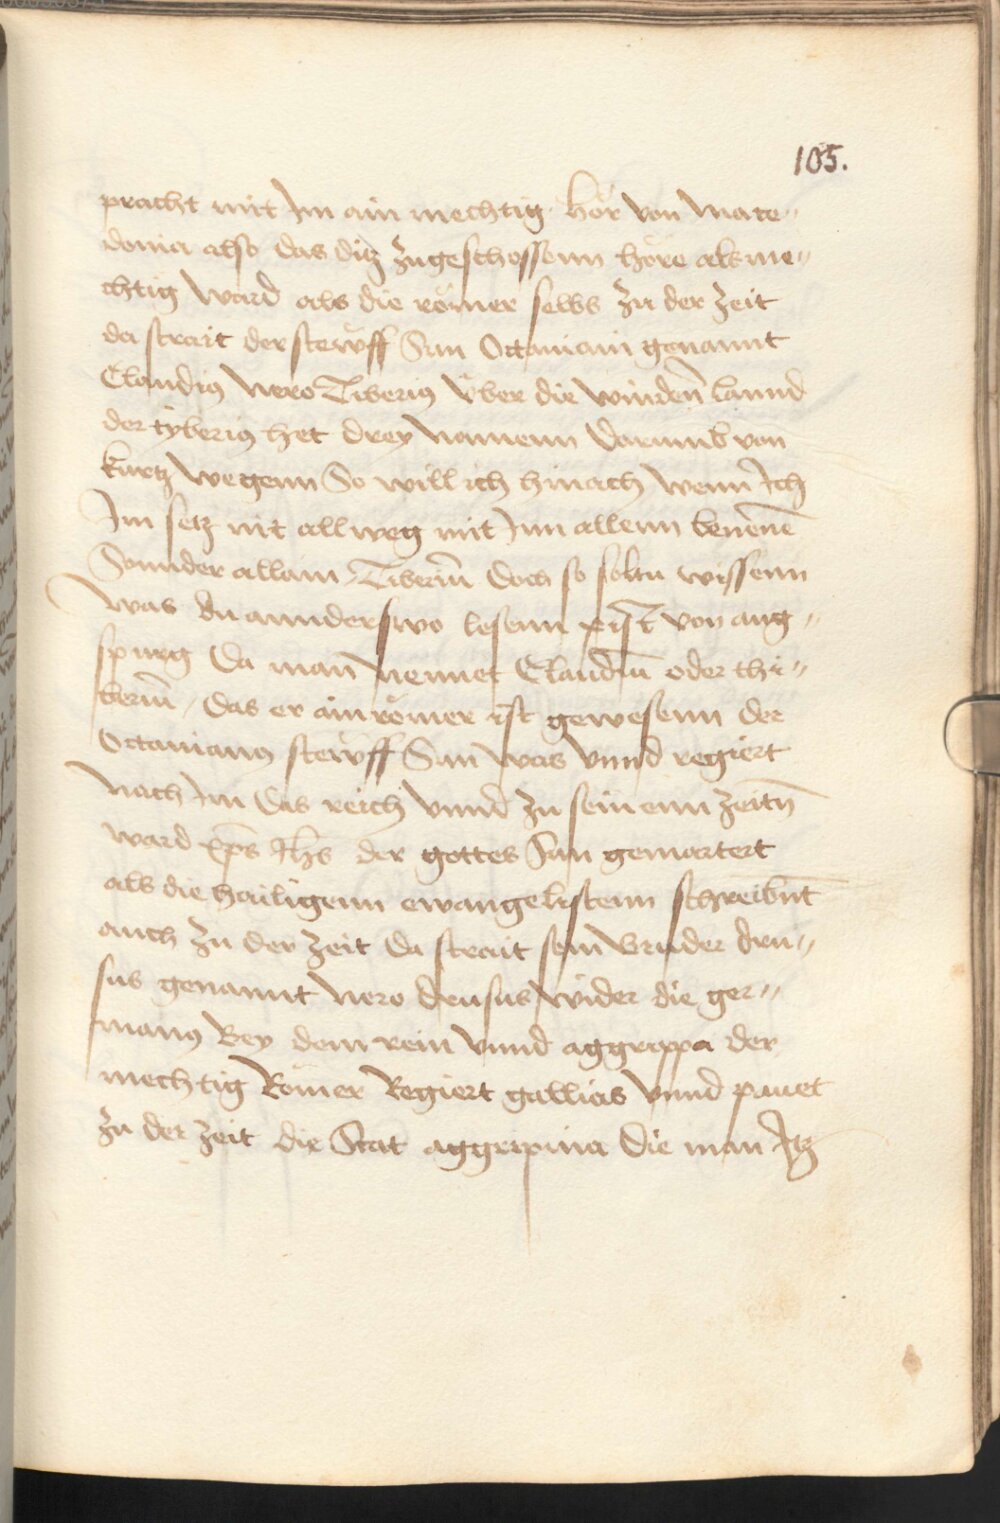 105.
pracht mit Jm ain mechtig hör von mace„
donia also das ditz zugeschossenn höre als me„
chtig ward als die römer selbs zu der zeit
da strait der stewff Sun Octaviani genannt
Claudius Nero Tiberius über die winden lannd
der tyberius het drey namenn darumb von
kurtz wegenn So will ich hinach wenn Ich
Jm setz nit allweg mit Jnn allenn benene
Sonnder allain Tiberiu doch so soltu wissenn
was du annderswo lesenn wist von aug„
spurg Da man nennet Claudiu oder thi„
beriu, das er ain römer ist gewesenn der
Octavianus stewff Sun was vnnd regiert
nach Jm das reich vnnd zu seinenn zeitn
ward xps Jhs der gottes Sun gemartert
als die hailigenn ewangelistenn schreibnt
auch zu der zeit da strait sein bruder dru„
sus genannt nero drusus wider die ger„
manus Bey dem rein vnnd aggreppa der
mechtig Römer Regiert gallias vnnd pauet
zu der zeit die Stat aggripina die man Jtz